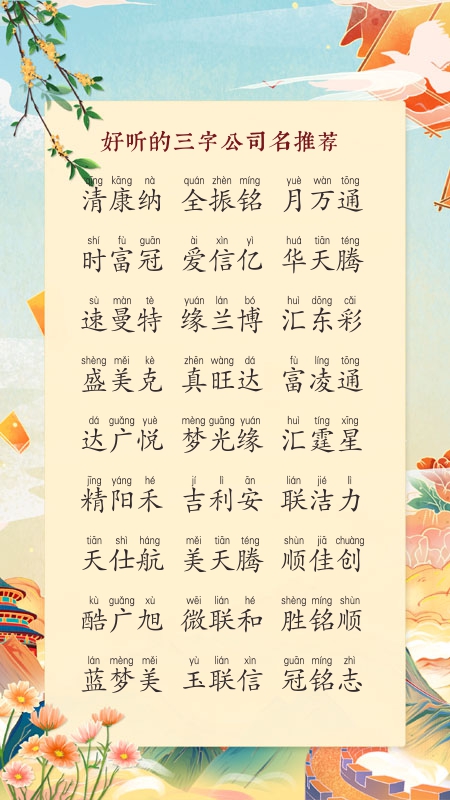 好听的三字公司名推荐
qīng kāng nà quán zhèn míng yuè wàn tōng
清康纳 全振铭 月万通
shí fù guān ài xìn yì huá tiān téng
时富冠 爱信亿 华天腾
sù màn tè yuán lán bó huì dōng cǎi
速曼特 缘兰博 汇东彩
shèng měi kè zhēn wàng dá fù líng tōng
盛美克 真旺达 富凌通
dá guǎng yuè mèng guāng yuán huì tíng xīng
达广悦 梦光缘 汇霆星
jīng yáng hé jí lì ān lián jié lì
精阳禾 吉利安 联洁力
tiān shì háng měi tiān téng shùn jiā chuàng
天仕航 美天腾 顺佳创
kù guǎng xù wēi lián hé shèng míng shùn
酷广旭 微联和 胜铭顺
lán mèng měi yù lián xìn guān míng zhì
蓝梦美 玉联信 冠铭志